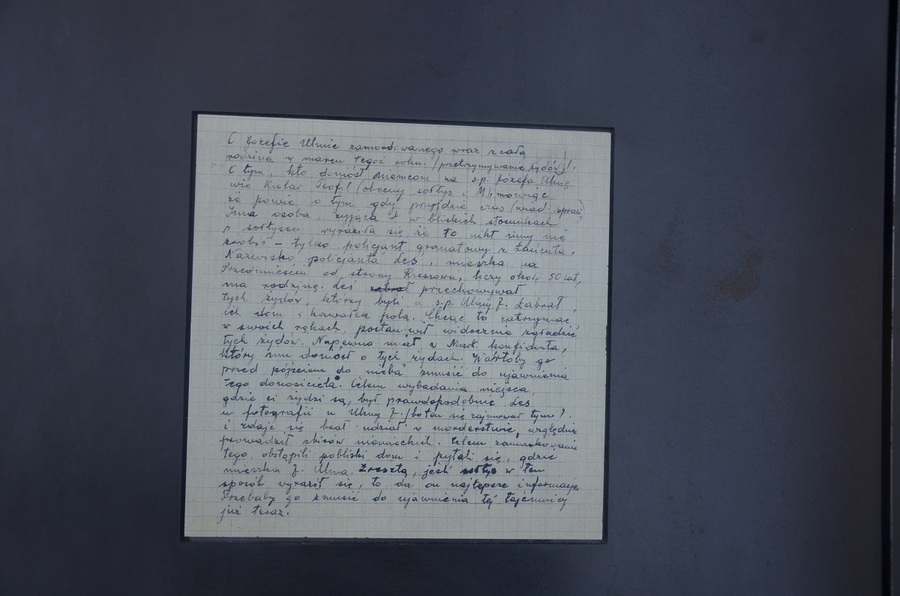 O Józefie Ulmie zamordowanego wraz z całą
rodziną w marcu tegoż roku. (przetrzymywanie żydów)!
O tym, kto donosił Niemcom na ś.p. Józefa Ulmę
wie Kielar Teofil (obecny sołtys z M.) mówiąc
że powie o tym gdy przyjdzie czas (zwad. spraw)
Inna osoba, żyjąca w bliskich stosunkach
z sołtysem wyraziła się, że to nikt inny nie
zrobił – tylko policjant granatowy z Łańcuta.
Nazwisko policjanta Leś, mieszka na
Przedmieściu od strony Rzeszowa, liczy około 50 lat,
ma rodzinę. Leś przechowywał
tych żydów, którzy byli u ś.p. Ulmy J. Zabrał
ich dom i kawałek pola. Chcąc to zatrzymać
w swoich rękach, postanowił widocznie zgładzić
tych żydów. Napewno miał z Mark. konfidenta,
który mu donosił o tych żydach. Wartoby go
przed pójściem do nieba zmusić do ujawnienia
tego donosiciela. Celem wybadania miejsca
gdzie ci żydzi są, był prawdopodobnie Leś
u fotografii u Ulmy J. (bo ten się zajmował tym)!
i zdaje się brał udział w morderstwie, względnie
prowadził zbirów niemieckich. Celem zamaskowania
tego, obstąpili pobliski dom i pytali się, gdzie
mieszka J. Ulma. Zresztą, jeśli sołtys w ten
sposób wyraził się, to da on najlepsze informacje
Trzebaby go zmusić do ujawnienia tej tajemnicy
już teraz.